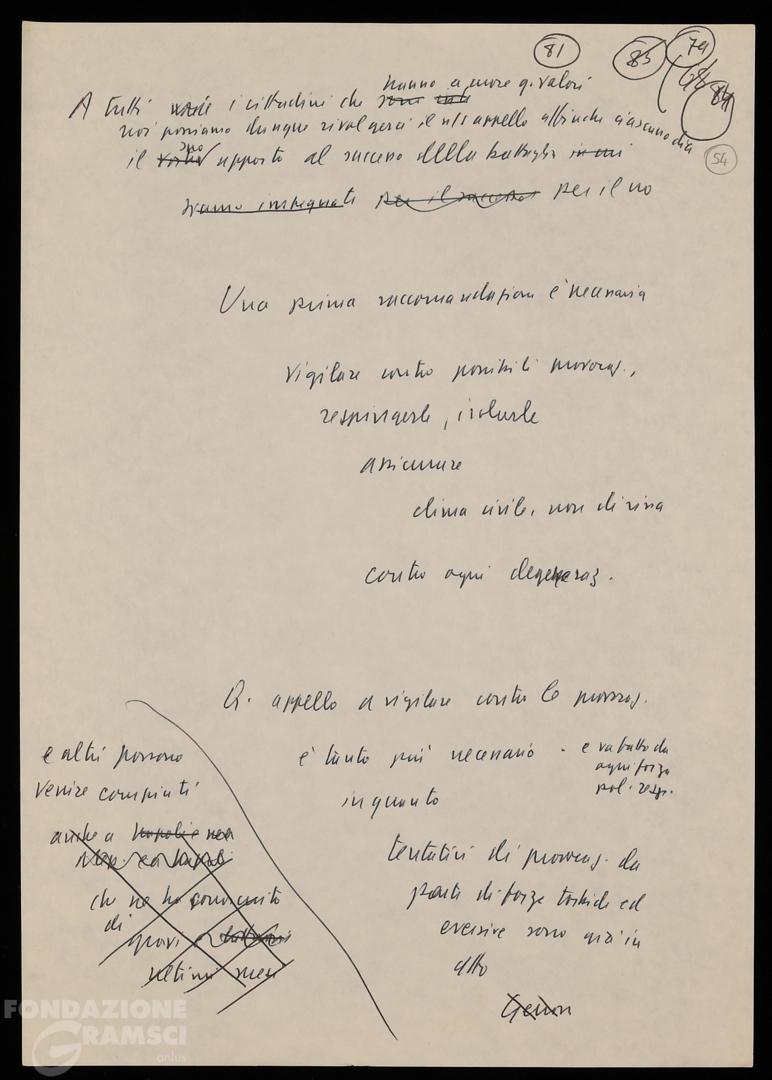 81 83 79
68 84
54
hanno a cuore q. valori
A tutti i cittadini che sono
noi possiamo dunque rivolgerci il ns appello affinché ciascuno dia
suo
il vostro apporto al successo della battaglia in cui
siamo impegnati per il successo per il no
Una prima raccomandazione è necessaria
vigilare contro possibili provocaz.,
respingerle, isolarle
assicurare
clima civile, non di rissa
contro ogni degeneraz.
Q. appello a vigilare contro le provocaz.
è tanto più necessario - e va fatto da
ogni forza
pol. resp.
in quanto
tentativi di provocaz. da
parte di forze torbide ed
eversive sono già in
atto
Genova
e altri possono
venire compiuti
anche a Napoli
che ne ha conosciuto
di gravi
ultimi mesi
FONDAZIONE
GRAMSCI
onlus